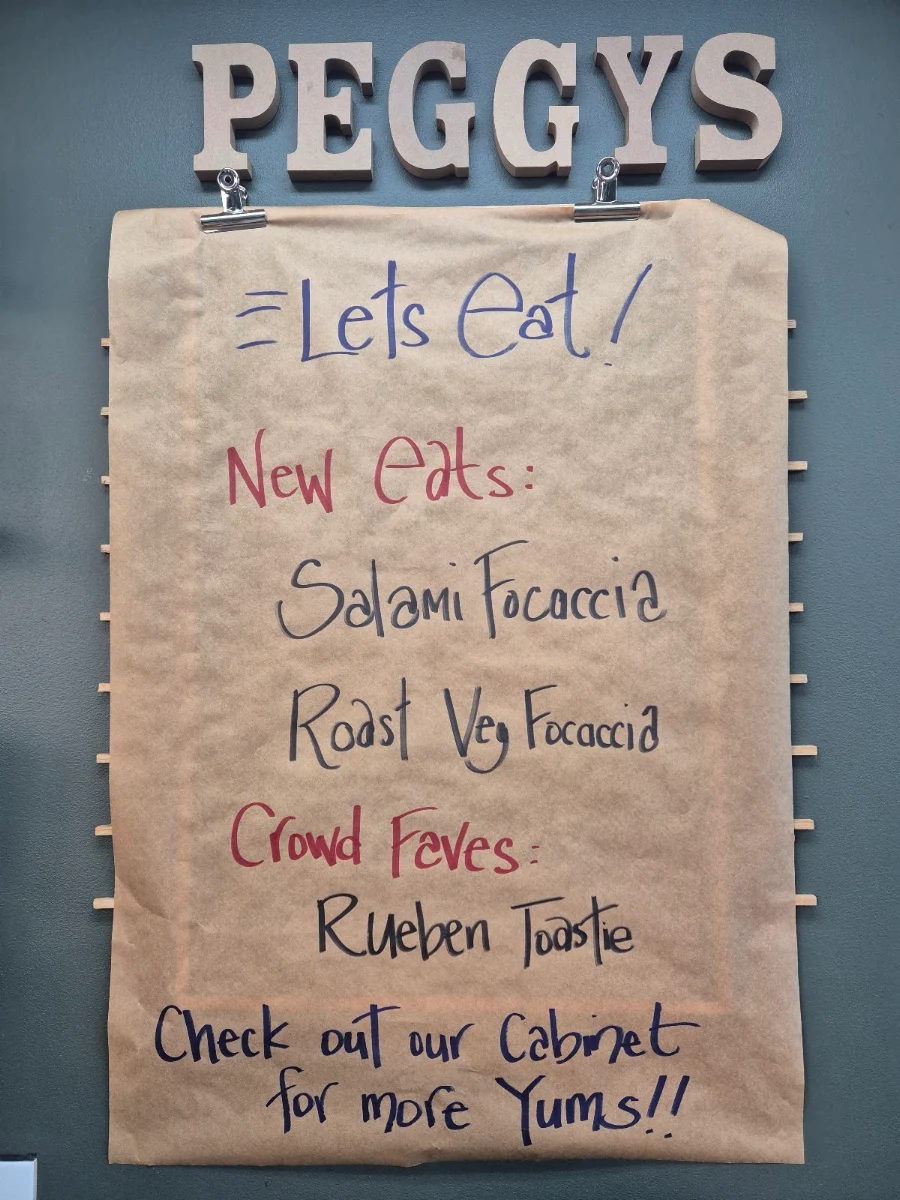 PEGGYS
Lets Eat!
New Eats:
Salami Focaccia
Roast Veg Focaccia
Crowd Faves:
Rueben Toastie
Check out our Cabinet
for more Yums!!